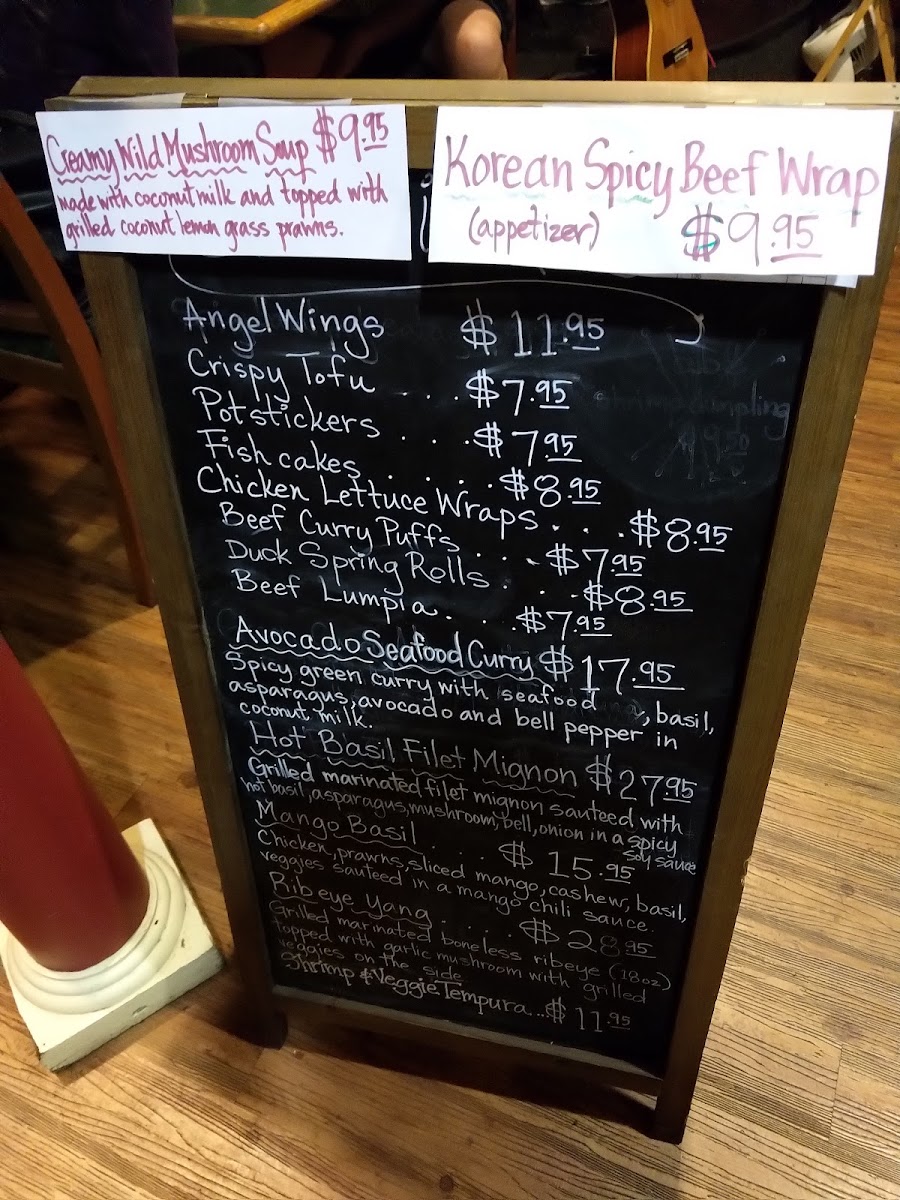 Creamy Wild Mushroom Soup $9.95
made with coconut milk and topped with
grilled coconut lemon grass prawns.
Korean Spicy Beef Wrap
(appetizer) $9.95
Angel Wings $11.95
Crispy Tofu ... $7.95
Potstickers .... $7.95
Fish cakes ..... $8.95
Chicken Lettuce Wraps... $8.95
Beef Curry Puffs ... $7.95
Duck Spring Rolls ... $8.95
Beef Lumpia .... $7.95
Avocado Seafood Curry $17.95
Spicy green curry with seafood, basil,
asparagus, avocado and bell pepper in
coconut milk.
Hot Basil Filet Mignon $27.95
Grilled marinated filet mignon sauteed with
hot basil, asparagus, mushroom, bell, onion in a spicy
soy sauce
Mango Basil .... $15.95
Chicken, prawns, sliced mango, cashew, basil,
veggies sauteed in a mango chili sauce.
Ribeye Yang ..... $28.95
Grilled marinated boneless ribeye (18oz)
topped with garlic mushroom with grilled
veggies on the side
Shrimp & Veggie Tempura... $11.95